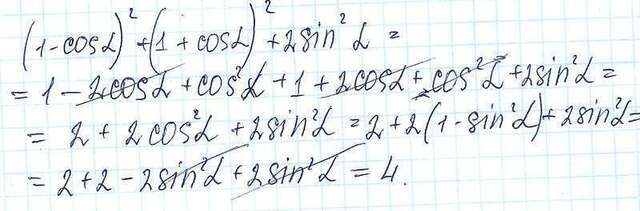 (1-cosα)² + (1 + cosα)² + 2sin²α =
= 1 - 2cosα + cos²α + 1 + 2cosα + cos²α + 2sin²α =
= 2 + 2cos²α + 2sin²α = 2 + 2(1-sin²α) + 2sin²α =
= 2 + 2 - 2sin²α + 2sin²α = 4.